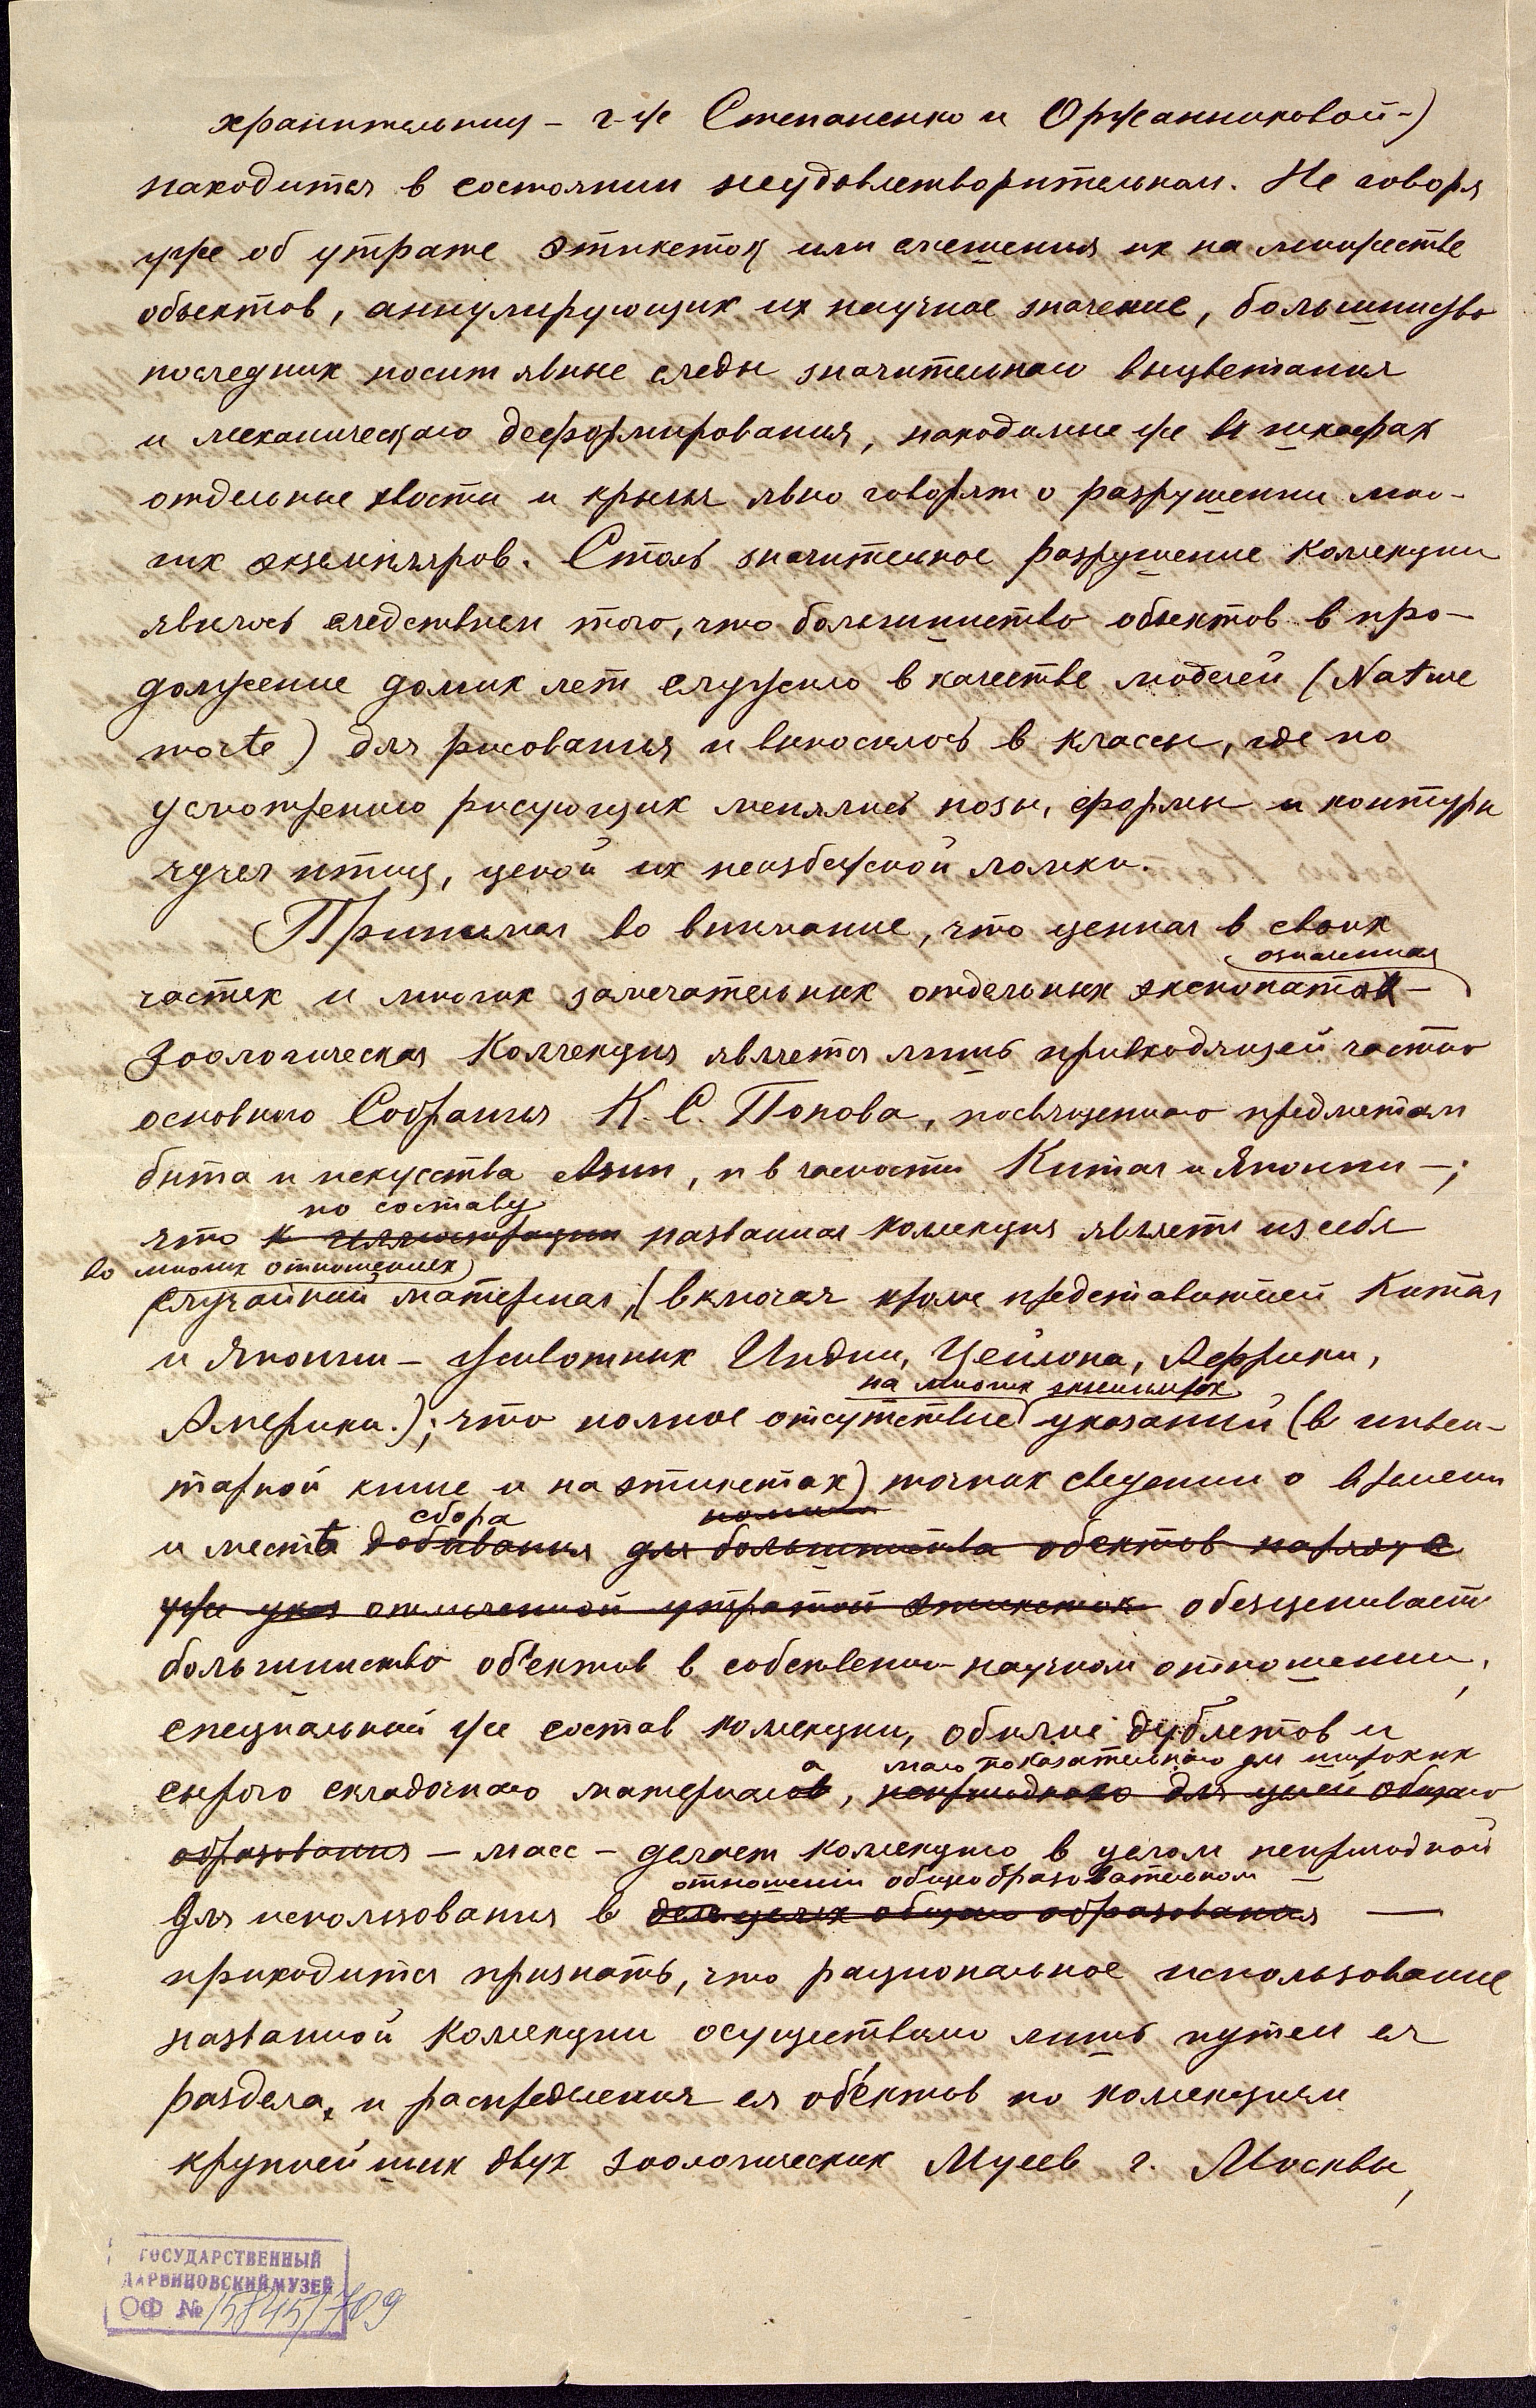 хранительниц – г-же Степаненко и Оржанниковой –)
находится в состоянии неудовлетворительном. Не говоря
уже об утрате этикеток или смешения их на множестве
объектов, аннулирующих их научное значение, большинство
последних носит явные следы значительнаго выцветания
и механическаго деформирования, находимые же в шкафах
отдельные хвосты и крылья явно говорят о разрушении мно-
гих экземпляров. Столь значительное разрушение коллекции
явилось следствием того, что большинство объектов в про-
должение долгих лет служило в качестве моделей (Nature
morte) для рисования и выносилось в классы, где по
усмотрению рисующих менялись позы, формы и контуры
чучел птиц, ценой их неизбежной ломки.
Принимая во внимание, что ценная в своих
означенная
частях и многих замечательных отдельных экспонатах –
зоологическая Коллекция является лишь привходящей частью
основного Собрания К. С. Попова, посвященнаго предметам
быта и искусства Азии, и в частности Китая и Японии –;
по составу
что к иллюстрации названная коллекция являет из себя
во многих отношениях
случайный материал, (включая кроме представителей Китая
и Японии – животных Индии, Цейлона, Африки,
на многих экземплярах
Америки.); что полное отсутствие указаний (в инвен-
тарной книге и на этикетках) точных сведений о времени
сбора
и места добывания для большинства объектов наряду с
уже указ отмеченной утратой этикеток обезценивает
большинство об'ектов в собственно-научном отношении,
специальный же состав коллекции, обилие дублетов и
а мало показательнаго для широких
сырого складочнаго материалов, непригодного для целей общаго
образования – масс – делает коллекцию в целом непригодной
отношении общеобразовательном
для использования в целях общаго образования –
приходится признать, что рациональное использование
названной коллекции осуществимо лишь путем ея
раздела, и распределения ея об'ектов по коллекциям
крупнейших двух зоологических Музеев г. Москвы,
ГОСУДАРСТВЕННЫЙ
ДАРВИНОВСКИЙ МУЗЕЙ
ОФ № 15845/709